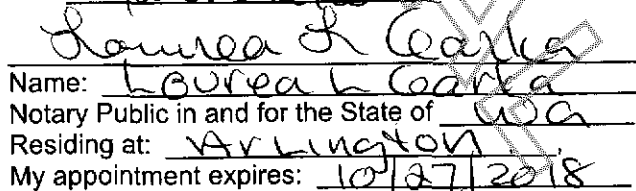 Laurea L Garka
Name: Laurea L Garka
Notary Public in and for the State of WA
Residing at: Arlington
My appointment expires: 10/27/2018